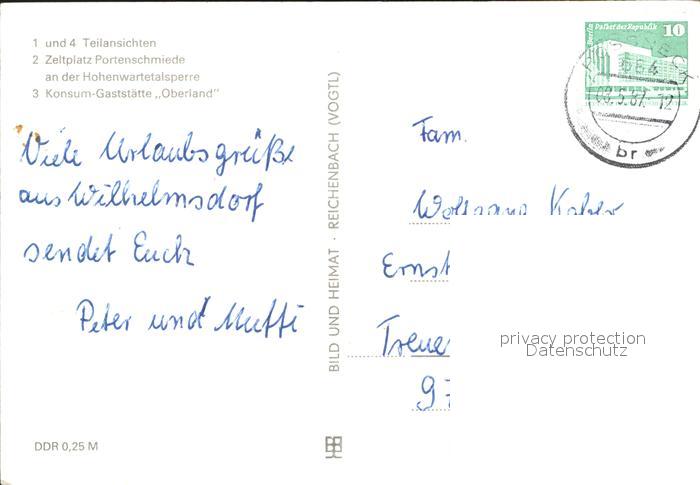 1 und 4 Teilansichten
2 Zeltplatz Portenschmiede
an der Hohenwartetalsperre
3 Konsum-Gaststätte „Oberland"
Viele Urlaubsgrüße
aus Wilhelmsdorf
sendet Euch
Peter und Muffi
DDR 0,25 M
BILD UND HEIMAT · REICHENBACH (VOGTL)
Berlin Palast der Republik 10
08.5.87. 12
br
Fam.
Wolfgang
Ernst
Treue
97
privacy protection
Datenschutz